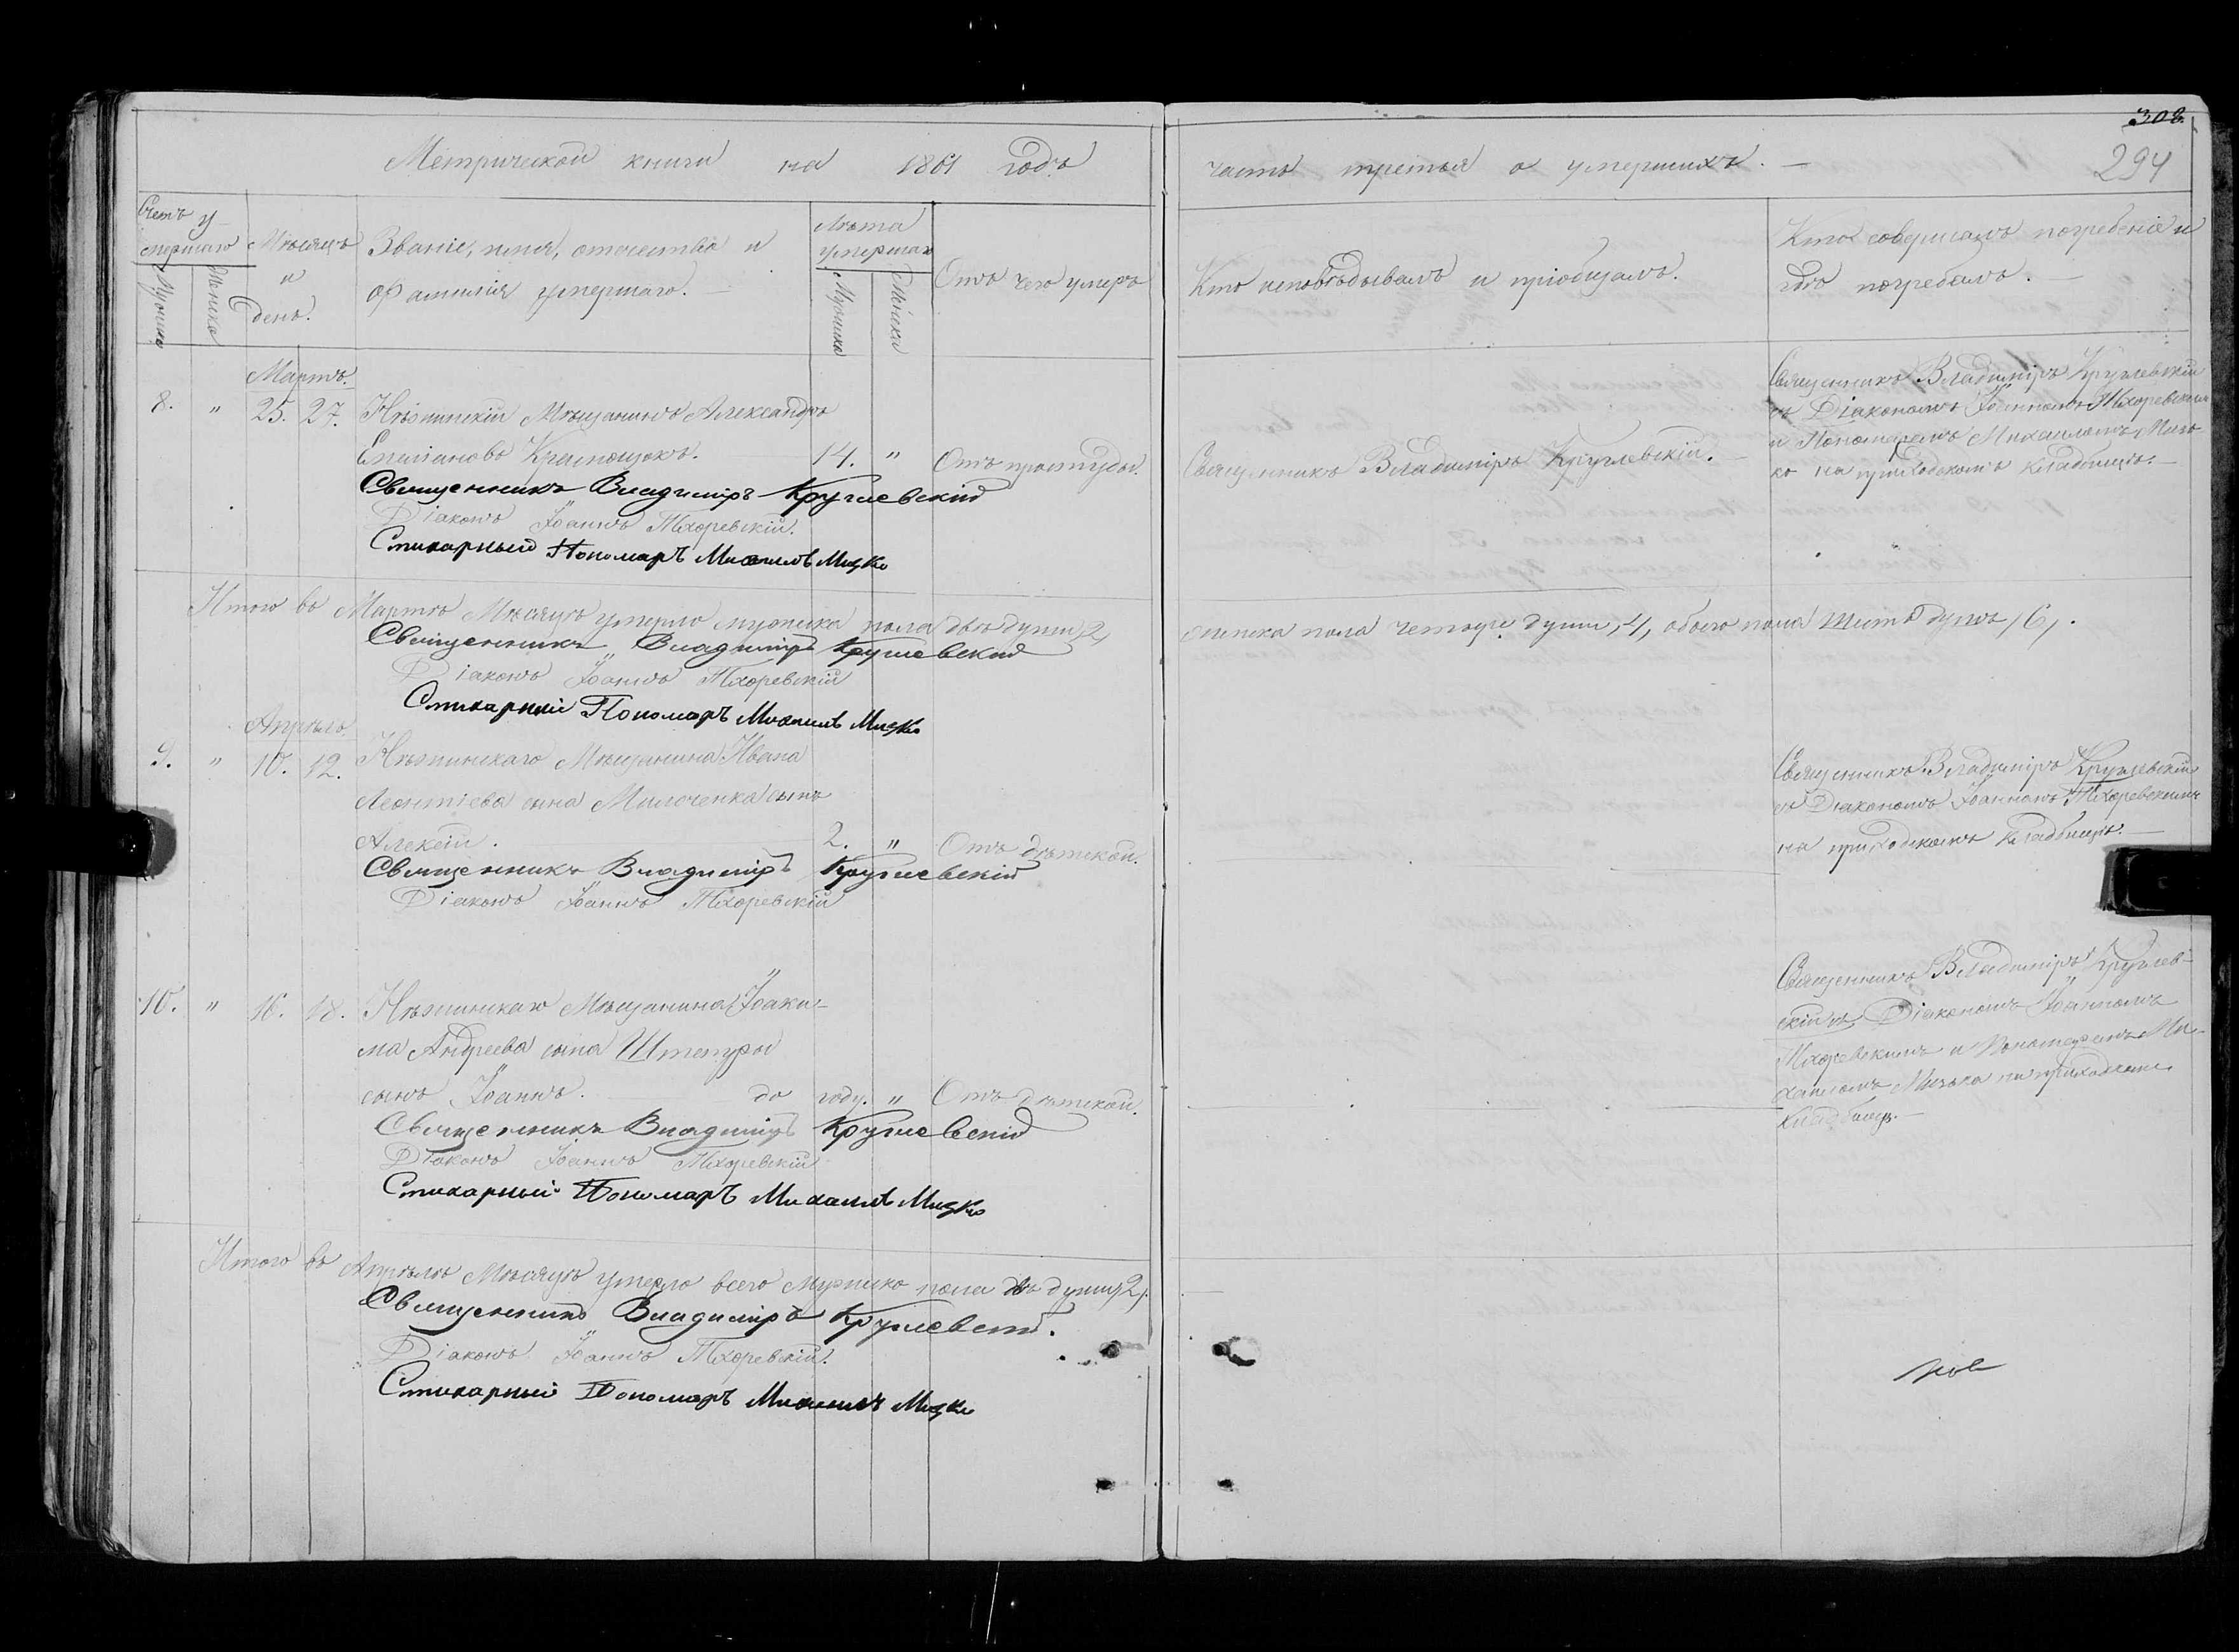 308.
Метрической книги на 1861 годъ
часть третья о умершихъ. —
294
Счетъ у-
мершаго
Мужска
Женска
Мѣсяцъ
и
день.
Званіе, имя, отечество и
фамилія умершаго. —
Лѣта
умершаго
Мужска
Женска
Отъ чего умеръ
Кто исповѣдывалъ и пріобщалъ.
Кто совершалъ погребеніе и
гдѣ погребалъ. —
Мартъ.
8. " 25. 27. Нѣжинскій Мѣщанинъ Александръ
Емиліановъ 14. " Отъ простуды.
Священникъ Владиміръ Круглевскій
Діаконъ Іоаннъ Тхоревскій.
Стихарный Пономарь Михаилъ Мизко
Священникъ Владиміръ Круглевскій. —
Священникъ Владиміръ Круглевскій
съ Діакономъ Іоанномъ Тхоревскимъ
и Пономаремъ Михаиломъ Мизь-
ко на приходскомъ кладбищѣ. —
Итого въ Мартѣ Мѣсяцѣ умерло мужска пола двѣ души 2,
женска пола четыре души, 4, обоего пола шесть душъ, 6,.
Священникъ Владиміръ Круглевскій
Діаконъ Іоаннъ Тхоревскій
Стихарний Пономарь Михаилъ Мизко
Апрѣль.
9. " 10. 12. Нѣжинскаго Мѣщанина Ивана
Леонтіева сына Милоченка сынъ
Алексій. 2. " Отъ дѣтской.
Священникъ Владиміръ Круглевскій
Діаконъ Іоаннъ Тхоревскій
Священникъ Владиміръ Круглевскій
съ Діакономъ Іоанномъ Тхоревскимъ
на приходскомъ кладбищѣ. —
10. " 16. 18. Нѣжинскаго Мѣщанина Іоаки-
ма Андреева сына Штепуры
сынъ Іоаннъ. до году. " Отъ дѣтской.
Священникъ Владиміръ Круглевскій
Діаконъ Іоаннъ Тхоревскій
Стихарный Пономарь Михаилъ Мизко
Священникъ Владиміръ Круглев-
скій съ Діакономъ Іоанномъ
Тхоревскимъ и Пономаремъ Ми-
хаиломъ Мизько на приходскомъ
кладбищѣ. —
Итого въ Апрѣлѣ Мѣсяцѣ умерло всего мужско пола двѣ души, 2,.
Священникъ Владиміръ Круглевскій.
Діаконъ Іоаннъ Тхоревскій.
Стихарный Пономарь Михаилъ Мизко